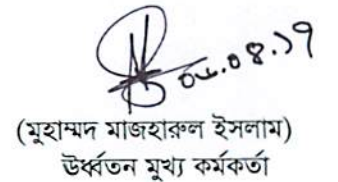 ০৮.০৪.১৭
(মুহাম্মদ মাজহারুল ইসলাম)
ঊর্ধ্বতন মুখ্য কর্মকর্তা